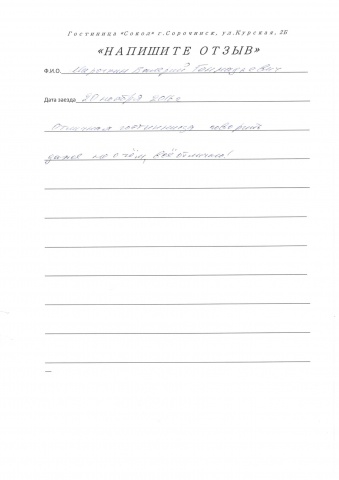 Гостиница «Сокол» г.Сорочинск, ул.Курская, 2Б
«НАПИШИТЕ ОТЗЫВ»
Ф.И.О. Валерий
Дата заезда 20 ноября
Отличная гостиница говорить
даже не о чём, всё отлично!